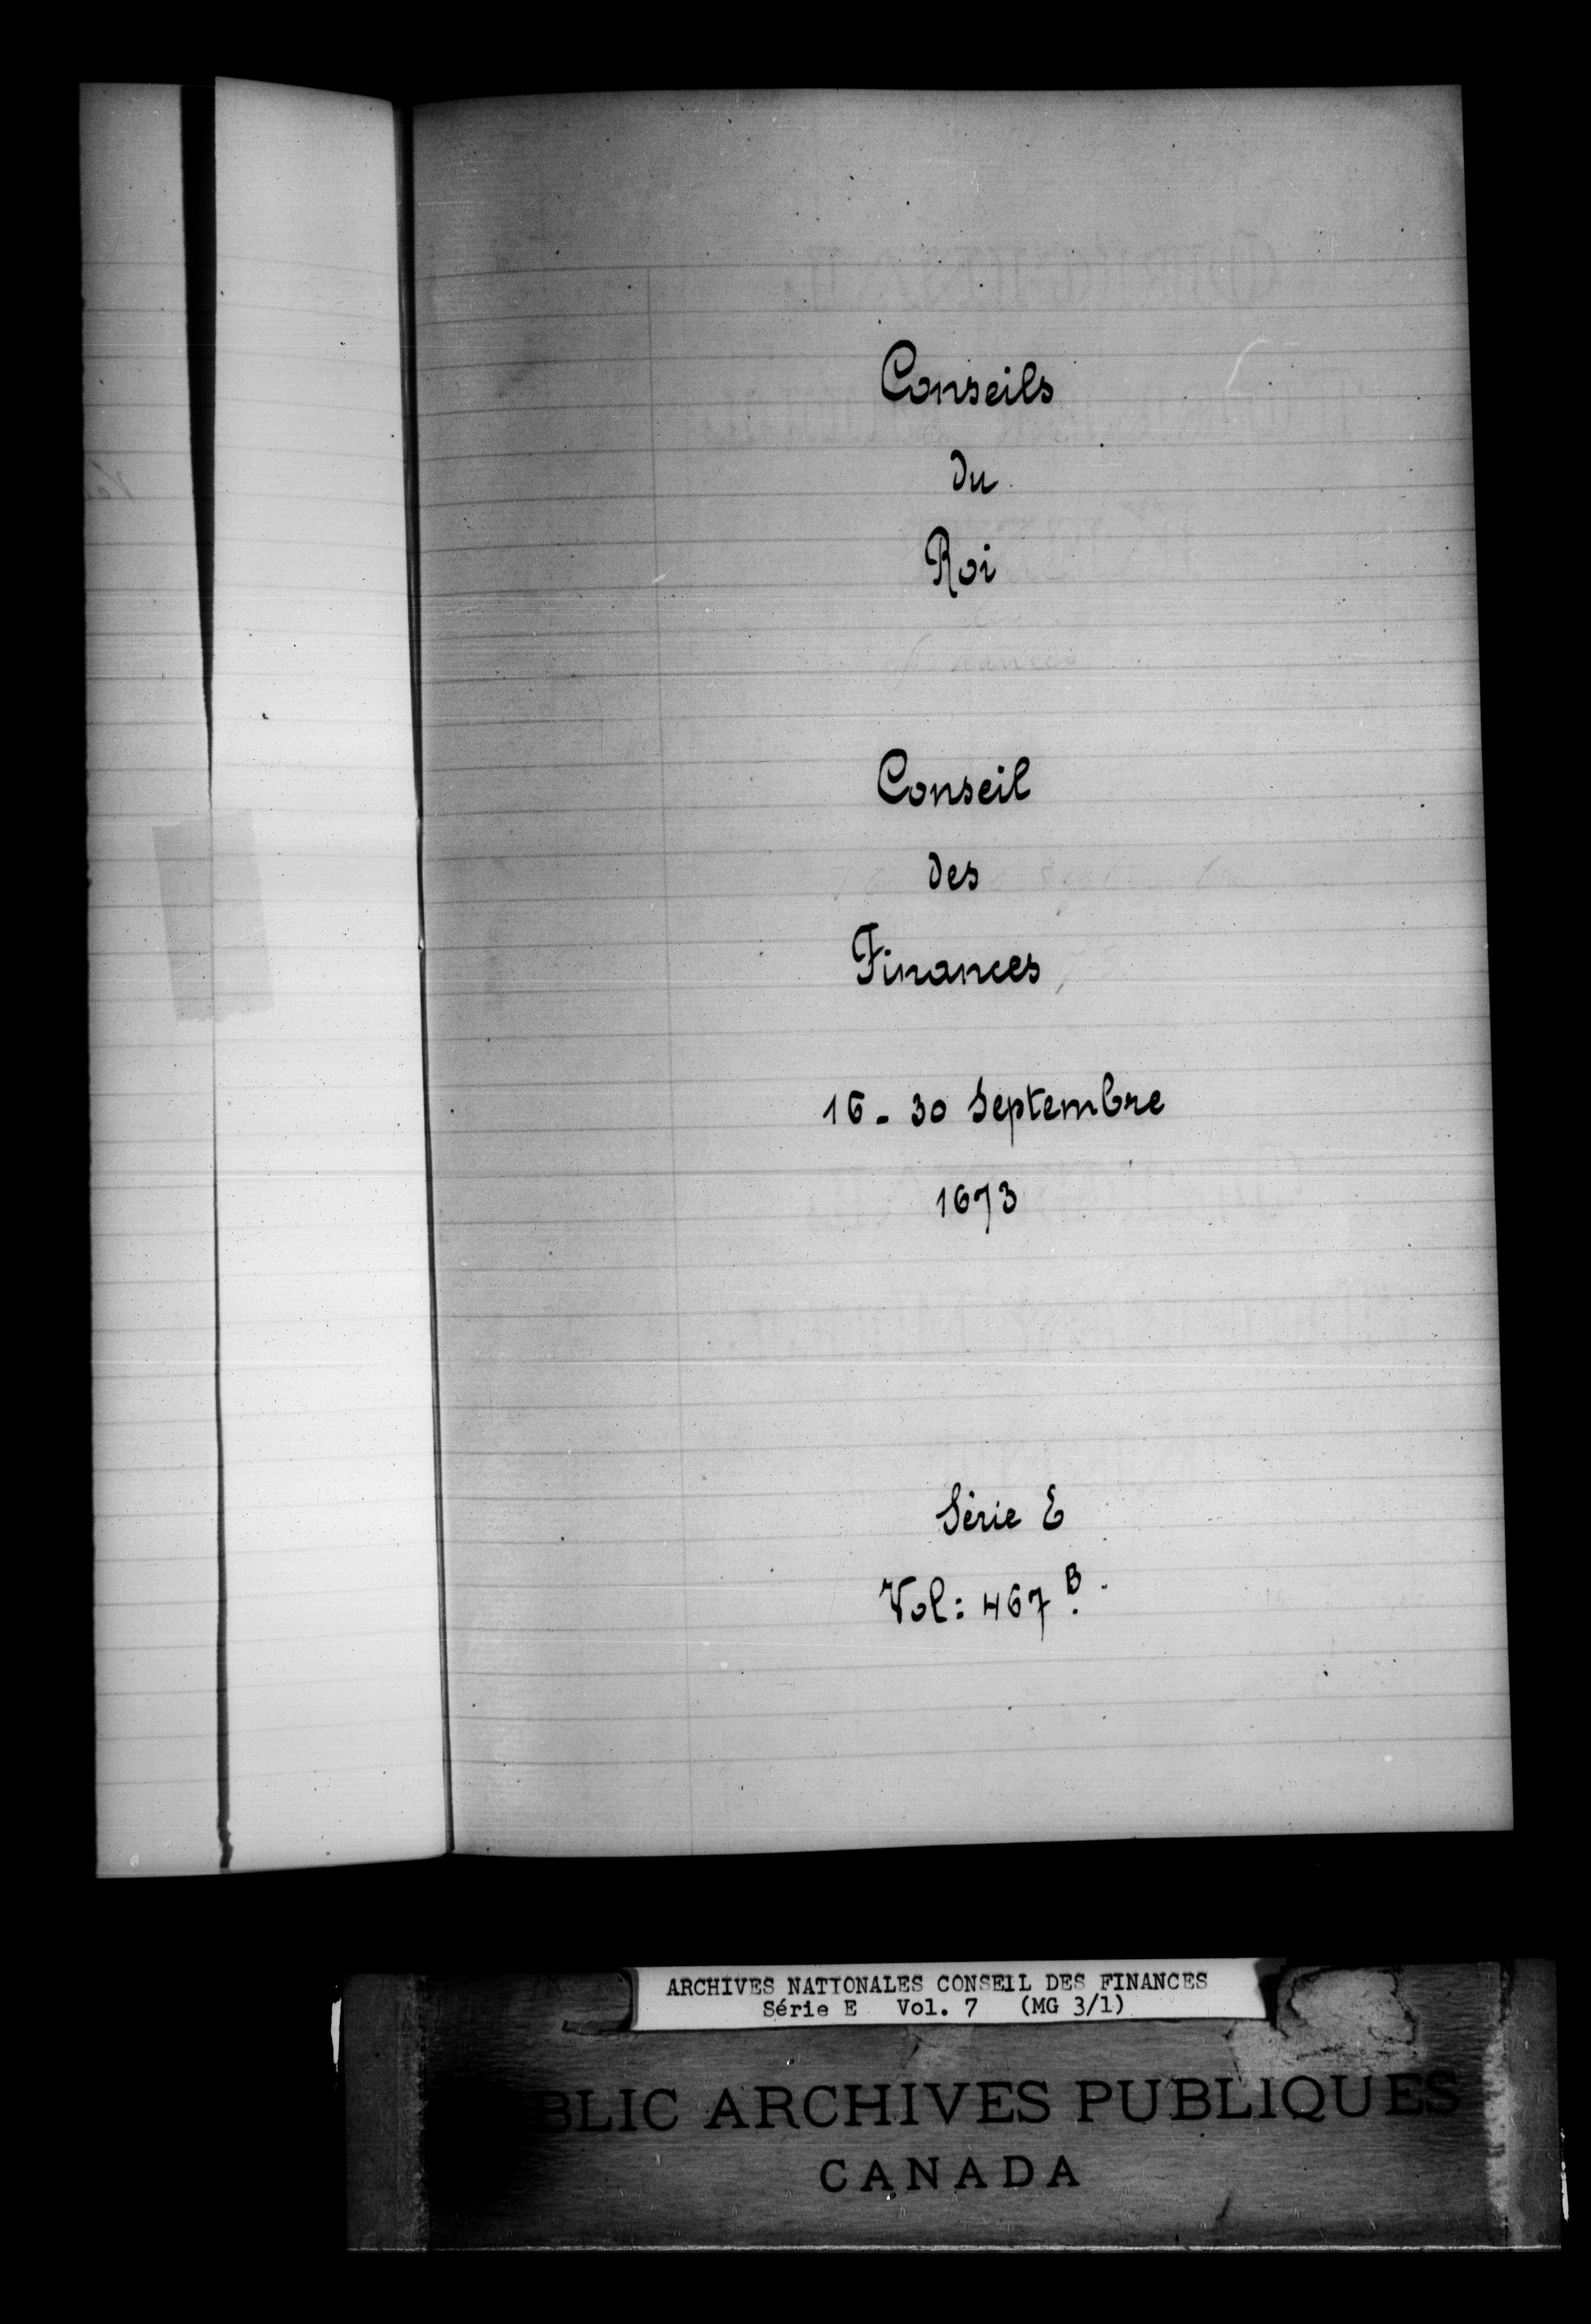 Conseils
du
Roi
Conseil
des
Finances
16 - 30 Septembre
1673
Série E
Vol: 467 B.
ARCHIVES NATIONALES CONSEIL DES FINANCES
Série E Vol. 7 (MG 3/1)
BLIC ARCHIVES PUBLIQUES
CANADA